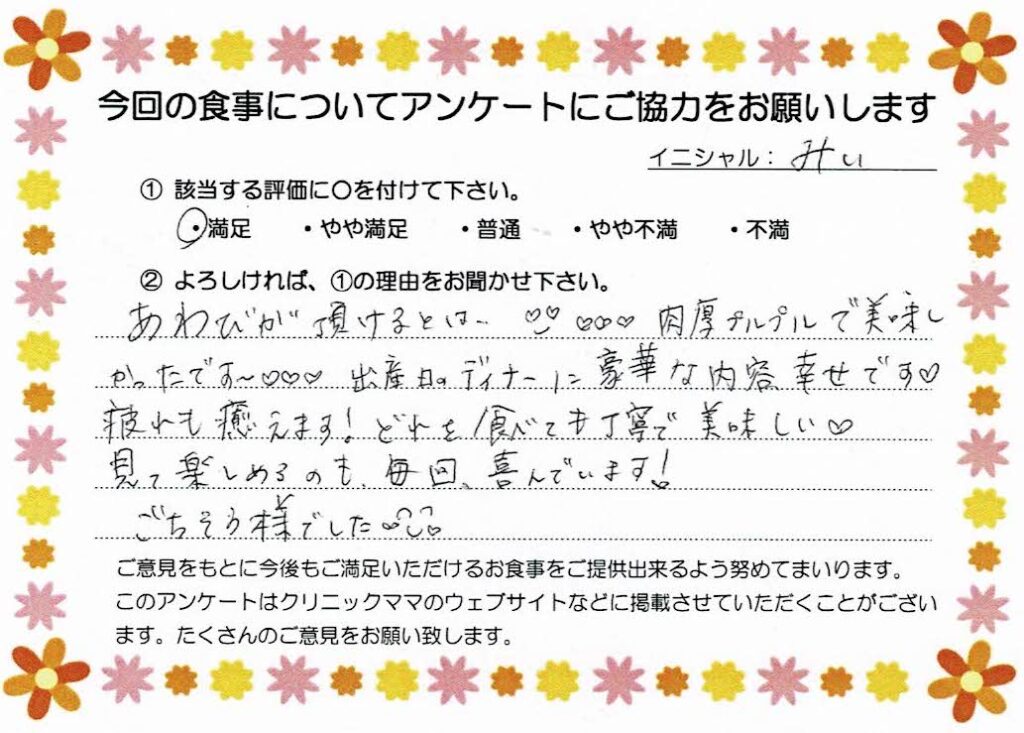 今回の食事についてアンケートにご協力をお願いします
イニシャル： みぃ
① 該当する評価に〇を付けて下さい。
・満足 ・やや満足 ・普通 ・やや不満 ・不満
② よろしければ、①の理由をお聞かせ下さい。
あわびが頂けるとは〜 ♡♡ ♡♡♡ 肉厚プルプルで美味し
かったです〜♡♡♡ 出産日のディナーに豪華な内容 幸せです♡
疲れも癒えます！どれを食べても丁寧で美味しい♡
見て楽しめるのも、毎回、喜んでいます！
ごちそう様でした♡♡
ご意見をもとに今後もご満足いただけるお食事をご提供出来るよう努めてまいります。
このアンケートはクリニックママのウェブサイトなどに掲載させていただくことがござい
ます。たくさんのご意見をお願い致します。